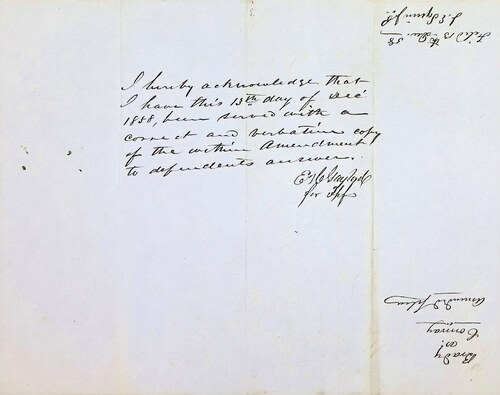 I hereby acknowledge that
I have this 13th day of Dec
1858, been served with a
correct and verbatim copy
of the within Amendment
to defendents answer.
for Plff
Filed 13th Dec 58
Brady
vs.
Conway